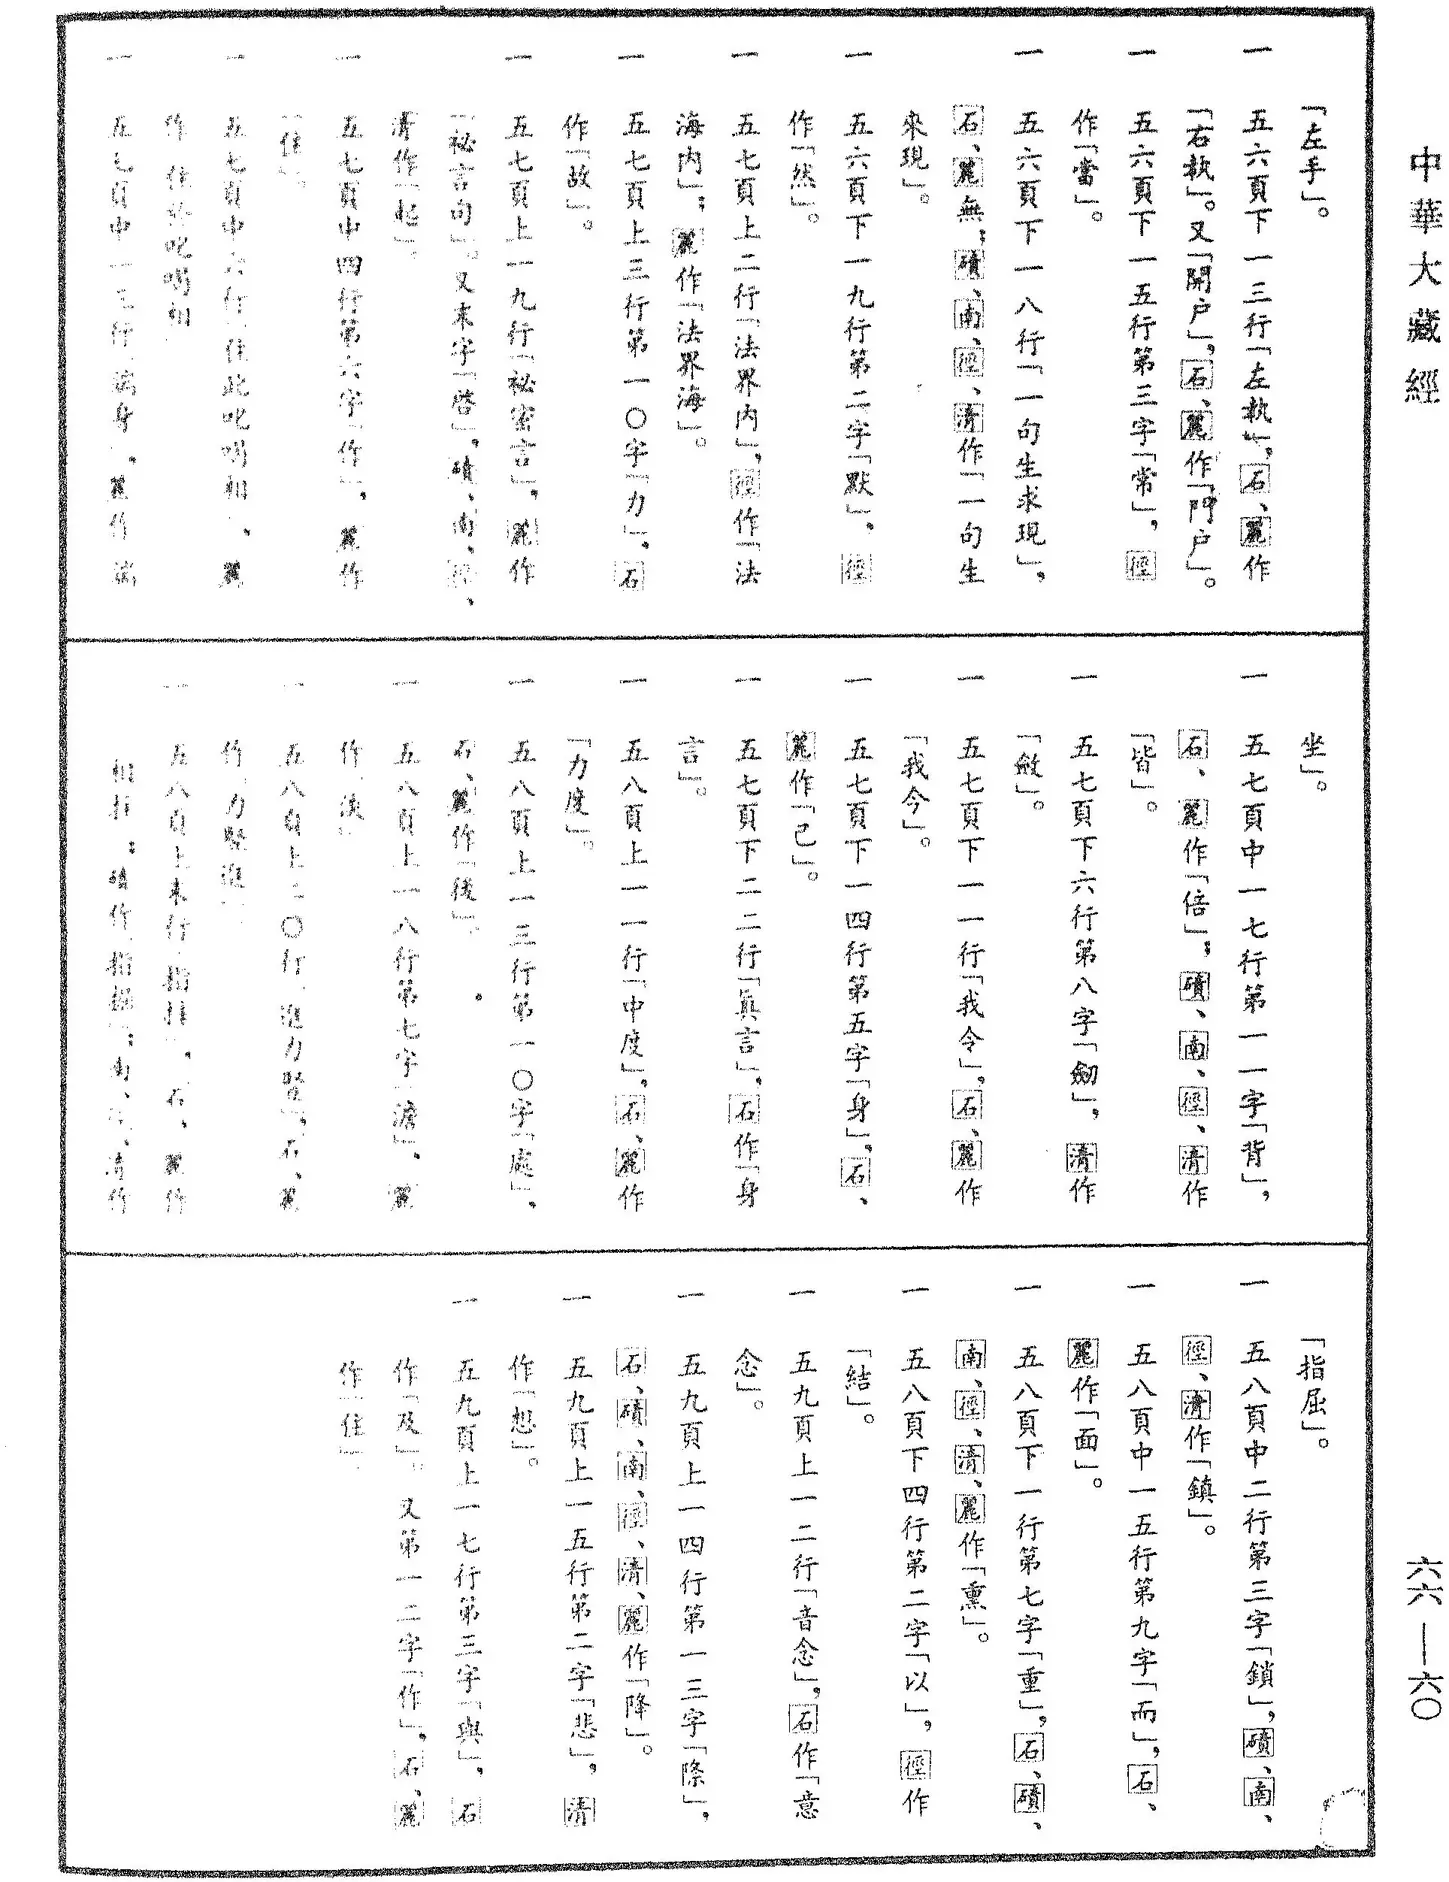 中華大藏經
六六—六〇
「左手」。
一 五六頁下一三行「左執」，石、麗作
「右執」。又「開户」，石、麗作「門户」。
一 五六頁下一五行第三字「常」，徑
作「當」。
一 五六頁下一八行「一句生求現」，
石、麗無；磧、南、徑、清作「一句生
來現」。
一 五六頁下一九行第二字「默」，徑
作「然」。
一 五七頁上二行「法界内」，徑作「法
海内」；麗作「法界海」。
一 五七頁上三行第一〇字「力」，石
作「故」。
一 五七頁上一九行「祕密言」，麗作
「祕言句」。又末字「啓」，磧、南、徑、
清作「起」。
一 五七頁中四行第六字「作」，麗作
「住」。
一 五七頁中六行「住此叱喝相」，麗
作「住於叱喝相
一 五七頁中一三行「端身」，麗作「端
坐」。
一 五七頁中一七行第一一字「背」，
石、麗作「倍」；磧、南、徑、清作
「皆」。
一 五七頁下六行第八字「劒」，清作
「斂」。
一 五七頁下一一行「我令」，石、麗作
「我今」。
一 五七頁下一四行第五字「身」，石、
麗作「己」。
一 五七頁下二二行「眞言」，石作「身
言」。
一 五八頁上一一行「中度」，石、麗作
「力度」。
一 五八頁上一三行第一〇字「處」，
石、麗作「後」。
一 五八頁上一八行第七字「澹」，麗
作「淡」
一 五八頁上二〇行「進力豎」，石、麗
作「力豎進」。
一 五八頁上末行「指拄」，石、麗作
「相拄」；磧作「指掘」；南、徑、清作
「指屈」。
一 五八頁中二行第三字「鎖」，磧、南、
徑、清作「鎮」。
一 五八頁中一五行第九字「而」，石、
麗作「面」。
一 五八頁下一行第七字「重」，石、磧、
南、徑、清、麗作「熏」。
一 五八頁下四行第二字「以」，徑作
「結」。
一 五九頁上一二行「音念」，石作「意
念」。
一 五九頁上一四行第一三字「際」，
石、磧、南、徑、清、麗作「降」。
一 五九頁上一五行第二字「悲」，清
作「想」。
一 五九頁上一七行第三字「與」，石
作「及」。又第一二字「作」，石、麗
作「住」。